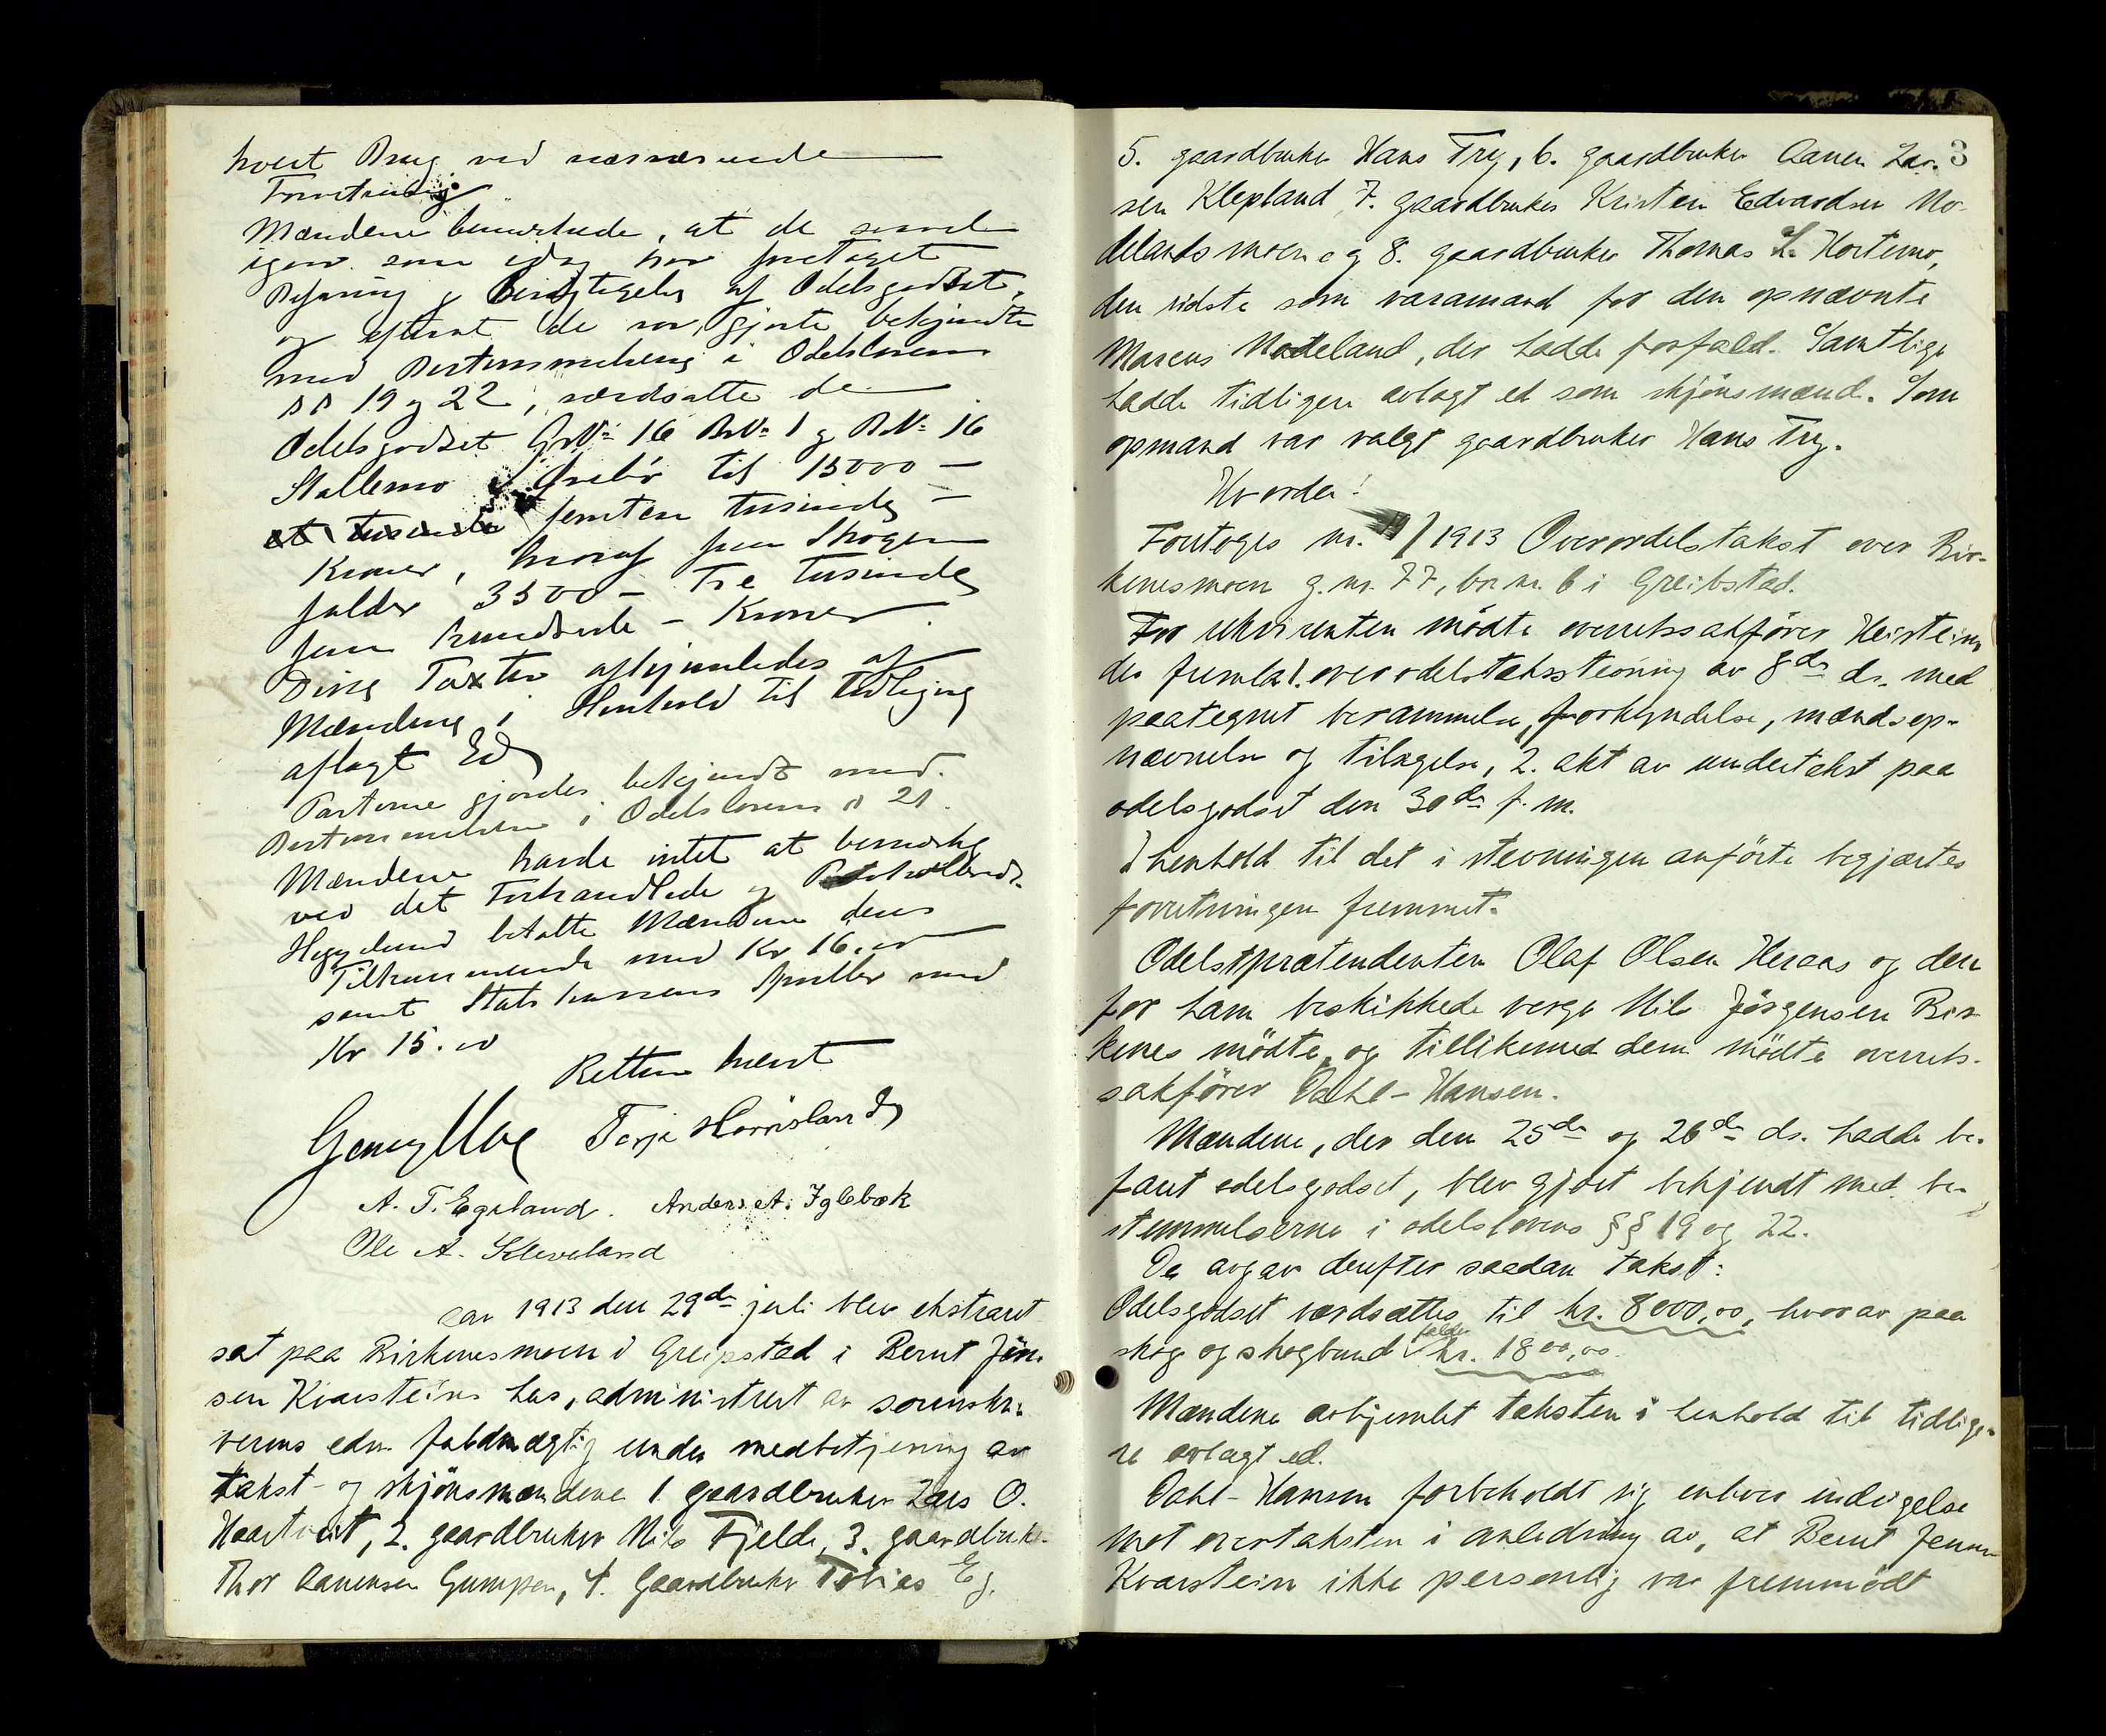 hvert Brug ved nærværende
Forretning.
Mændene bemærkede, at de saavel
igaar som idag har foretaget
Befaring og Besigtigelse af Odelsgodset,
og efterat de var gjorte bekjendte
med Bestemmelserne i Odelsloven
§§ 19 og 22, værdsatte de
Odelsgodset GrNº 16 BrNº 1 og BrNº 16
Stallemo i Øvrebø til 15000 –
et tusinde femten tusinde –
Kroner, hvoraf paa Skogen
falder 3500 – Tre tusinde
fem hundrede – Kroner.
Disse Taxter afhjemledes af
Mændene i Henhold til tidligere
aflagt Ed
Parterne gjordes bekjendt med
Bestemmelserne i Odelsloven § 21.
Mændene havde intet at bemærke
ved det Forhandlede og
betalte Mændene deres
Tilkommende med Kr 16.00
samt Statskassens Sportler med
Kr 15.00
Retten hævet
Terje
A. T. Egeland. Anders A. Iglebæk
Ole A. Kleveland
Aar 1913 den 29de juli blev ekstraret
sat paa Birkenesmoen i Greipstad i Bernt Jen-
sen Kvarsteins hus, administrert av sorenskri-
verens edsv. fuldmægtig under medbetjening av
takst- og skjønsmændene 1. gaardbruker Lars O.
Haartveit, 2. gaardbruker Nils Fjelde, 3. gaardbruker
Thor Aanensen Gumpen, 4. Gaardbruker Tobias Eg,
3
5. gaardbruker Hans Try, 6. gaardbruker Aanen Lar-
sen Klepland 7. gaardbruker Kristen Edvardsen No-
delandsmoen og 8. gaardbruker Thomas L. Hortemo,
den sidste som varamand for den opnævnte
Marcus Nodeland, der hadde forfald. Samtlige
hadde tidligere avlagt ed som skjønsmænd. Som
opmand var valgt gaardbruker Hans Try.
Hvorda:
Foretoges nr. /1913 Overodelstakst over Bir-
kenesmoen g.nr. 77, br.nr. 6 i Greibstad.
For rekvirenten mødte overretssakfører Heistein,
der fremla 1. overodelstakststevning av 8de ds. med
paategnet berammelse, forkyndelse, mændsop-
nævnelse og tilsigelse, 2. akt av undertakst paa
odelsgodset den 30de f. m.
I henhold til det i stevningen anførte begjærtes
forretningen fremmet.
Odelsprætendenten Olaf Olsen Heraas og den
for ham beskikkede verge Nils Jørgensen Bir-
kenes mødte, og tillikemed dem mødte overrets-
sakfører Dahl-Hansen.
Mændene, der den 25de og 26de ds. hadde be-
faret odelsgodset, blev gjort bekjendt med be-
stemmelserne i odelslovens §§ 19 og 22.
De avgav derefter saadan takst:
Odelsgodset værdsættes til kr. 8000,00, hvorav paa
skog og skogbund falder kr. 1800,00.
Mændene avhjemlet taksten i henhold til tidlige-
re avlagt ed.
Dahl-Hansen forbeholdt sig enhver indsigelse
mot overtaksten i anledning av, at Bernt Jensen
Kvarstein ikke personlig var fremmødt